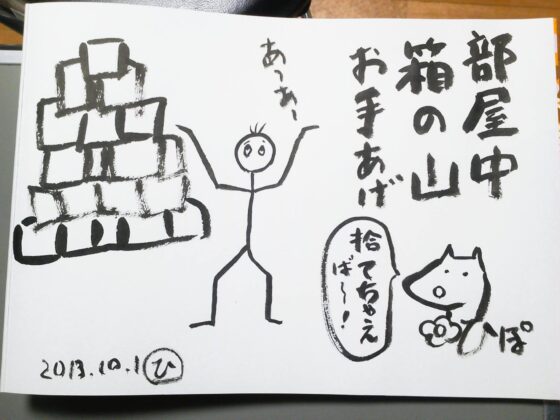 部屋中
箱の山
お手あげ
あ〜あ〜
捨てちゃえ
ば〜!
ひぽ
2013.10.1 ひ